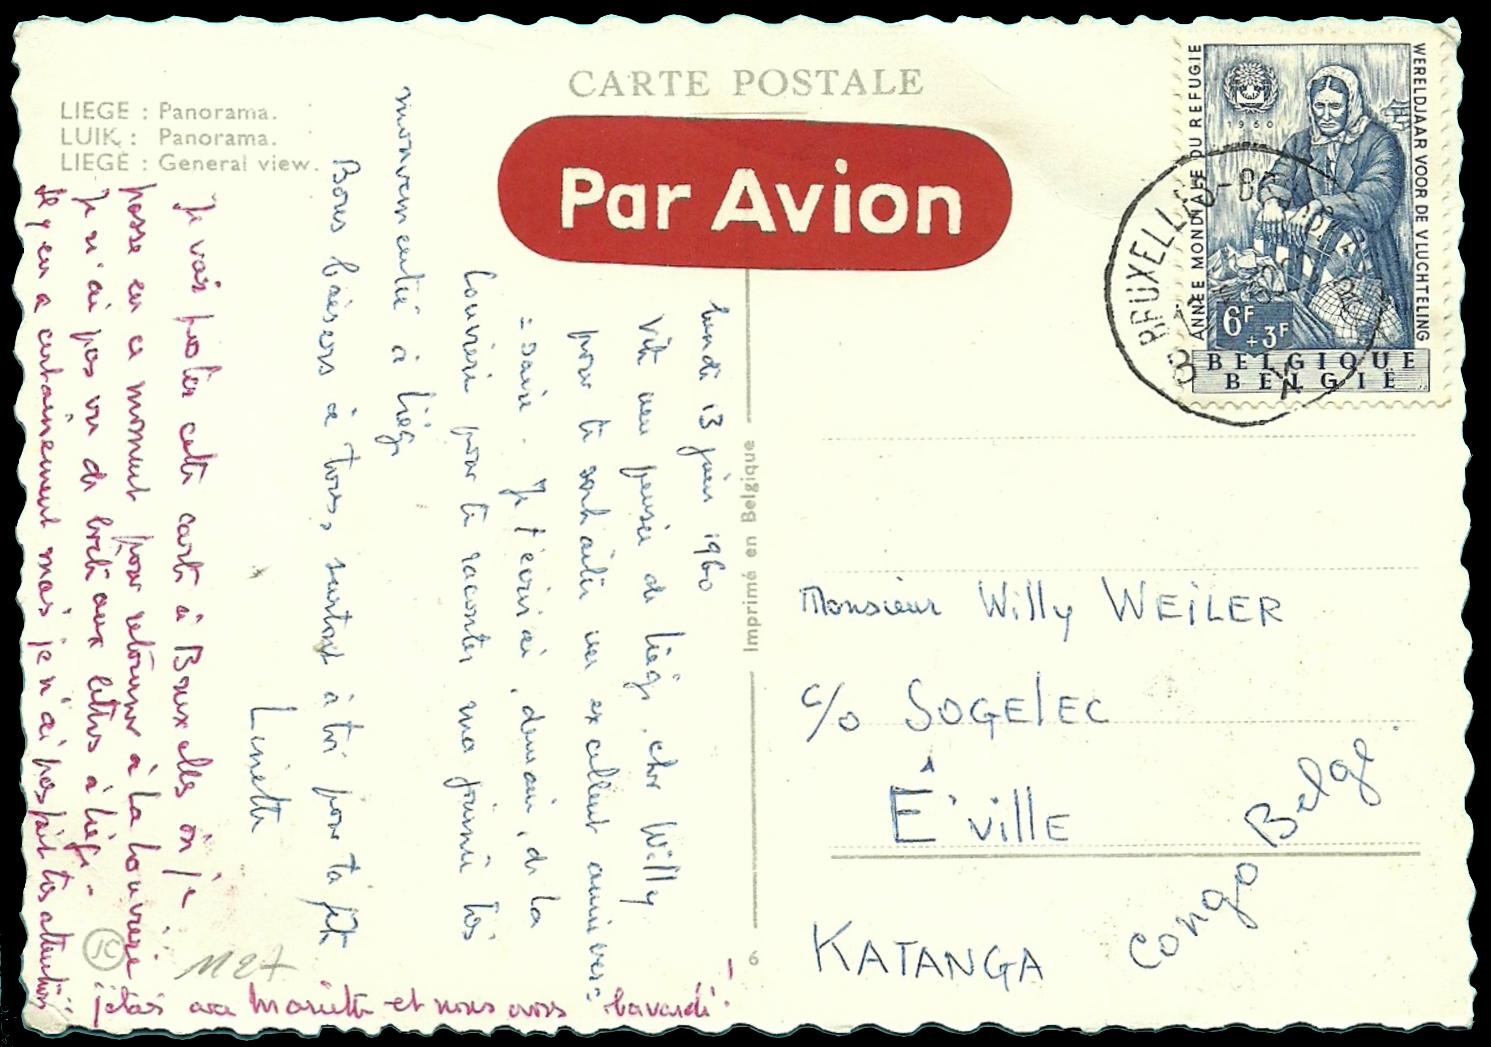 CARTE POSTALE
LIEGE : Panorama.
LUIK : Panorama.
LIEGE : General view.
Par Avion
ANNEE MONDIALE DU REFUGIE
WERELDJAAR VOOR DE VLUCHTELING
1960
6F
+3F
BELGIQUE
BELGIË
BRUXELLES
Imprimé en Belgique
6
lundi 13 juin 1960
Vite une pensée de Liège, cher Willy
pour te souhaiter un excellent anniver-
=saire. Je t'écrirai, demain, de La
Louvière pour te raconter ma journée très
mouvementée à Liège
Bons baisers à tous, surtout à toi pour ta fête
Linette
Je vais poster cette carte à Bruxelles où je
passe en ce moment pour retourner à La Louvière
Je n'ai pas vu de boîte aux lettres à Liège.
Il y en a certainement mais je n'ai pas fait très attention:
j'étais avec Mariette et nous avons "bavardé"!
JC
1127
Monsieur Willy WEILER
c/o SOGElEC
É'villE
KATANGA
Congo Belge.